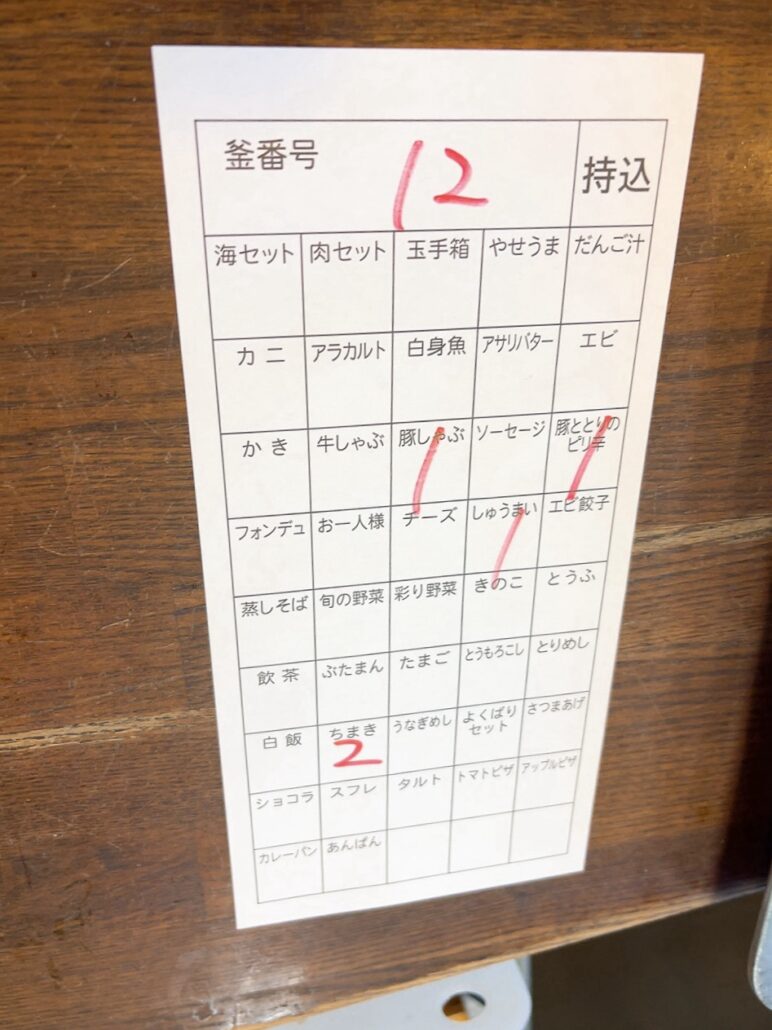 釜番号 12 持込
海セット 肉セット 玉手箱 やせうま だんご汁
カニ アラカルト 白身魚 アサリバター エビ
かき 牛しゃぶ 豚しゃぶ ソーセージ 豚ととりの
ピリ辛
1 1
フォンデュ お一人様 チーズ しゅうまい エビ餃子
1
蒸しそば 旬の野菜 彩り野菜 きのこ とうふ
飲茶 ぶたまん たまご とうもろこし とりめし
白飯 ちまき うなぎめし よくばり さつまあげ
セット
2
ショコラ スフレ タルト トマトピザ アップルピザ
カレーパン あんぱん